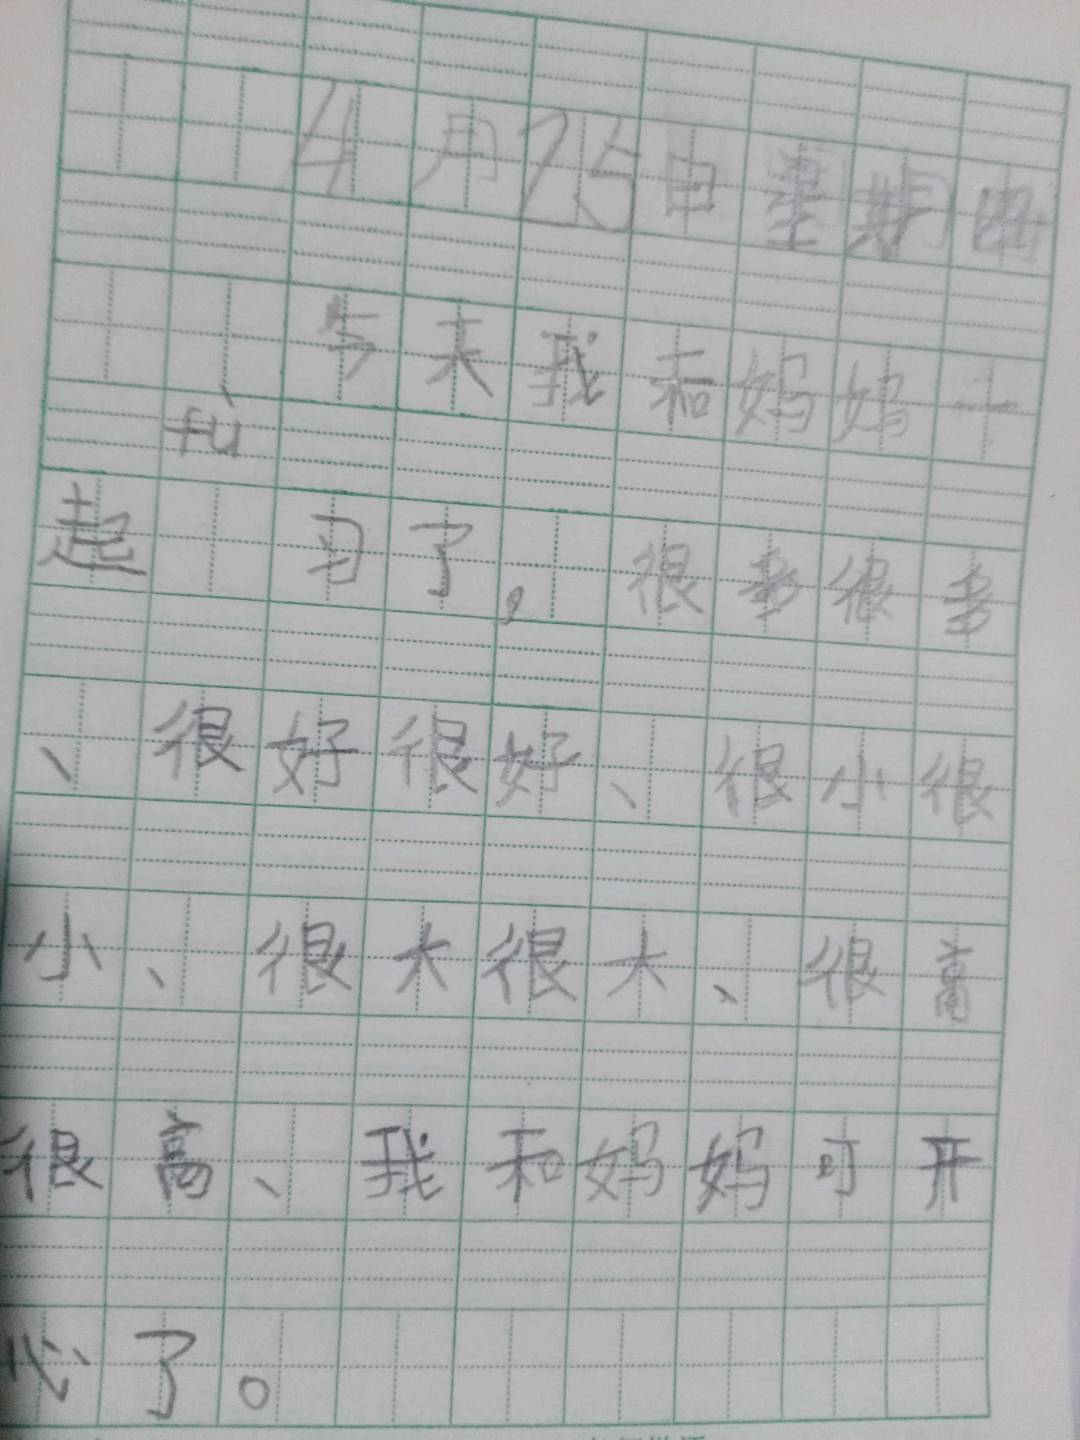 4月25日星期四
今天我和妈妈一
fù
起 习了。很多很多
、很好很好、很小很
小、很大很大、很高
很高、我和妈妈可开
心了。